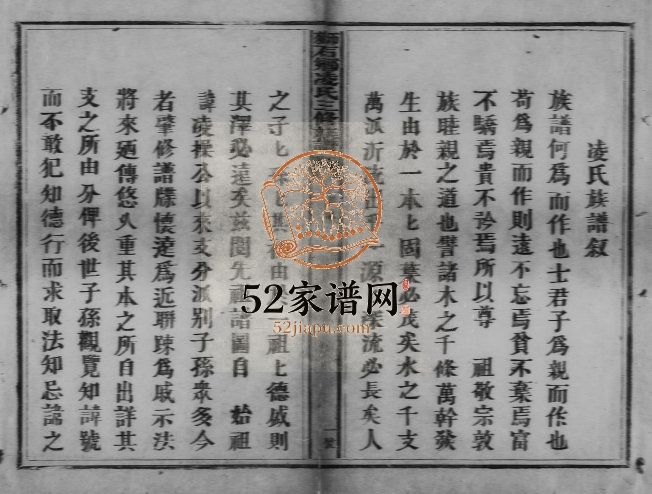 凌氏族譜叙
族譜何為而作也士君子為親而作也
苟為親而作則遠不忘焉貧不棄焉富
不驕焉貴不矜焉所以尊 祖敬宗敦
族睦親之道也譬諸木之千條萬幹發
生由於一本匕固葉必茂矣水之千支
萬派沂流 一源 流必長矣人
石 凌氏三修 
之子匕 由 祖上德盛則
其澤必遠矣兹閱先祖諸圖自 始祖
諱凌操公以來支分派别子孫眾多今
者肇修譜牒懷遠為近聯踈為戚示法
將來廼傳悠久重其本之所自出詳其
支之所由分俾後世子孫觀覽知諱號
而不敢犯知德行而求取法知忌諱之
一
52家谱网
52jiapu.com